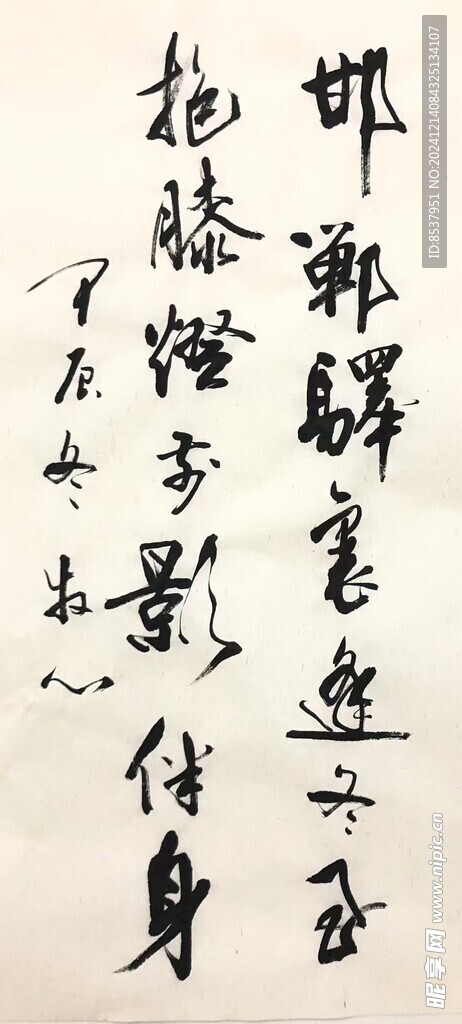 邯鄲驛裏逢冬至
抱膝燈前影伴身
甲辰冬牧心
ID:8537951 NO:20241214084325134107
昵享网 www.nipic.cn